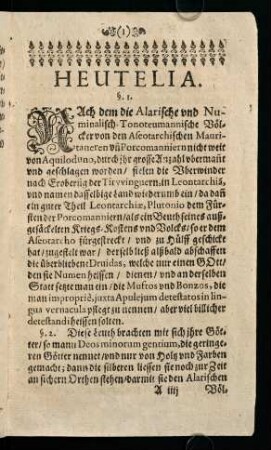 (1)
HEUTELIA.
§. 1.
NAch dem die Alarische vnd Nu-
minalisch-Tonoteumannische Völ-
cker von den Aseotarchischen Mauri-
taneten vñ Porcomanniern nicht weit
von Aquiloduno, durch ihr grosse Anzahl vbermañt
vnd geschlagen worden / fielen die Vberwinder
nach Eroberũg der Tirvvinguern, in Leontarchiã,
vnd namen dasselbige Land widerumb ein / da dañ
ein guter Theil Leontarchiæ, Plutonio dem Für-
sten der Porcomanniern / als ein Beuth seines auß-
gesäckelten Kriegs-Kostens vnd Volcks / so er dem
Aseotarcho fürgestreckt / vnd zu Hülff geschickt
hat / zugetelt war / derselb ließ alßbald abschaffen
die vberblibene Druidas, welche nur einen GOtt /
den sie Numen heissen / dienen / vnd an derselben
Statt setzte man ein / die Mustos vnd Bonzos, die
man impropriè, juxta Apulejum detestatos in lin-
gua vernacula pflegt zu nennen / aber viel billicher
detestandi heissen solten.
§. 2. Diese Leuth brachten mit sich ihre Göt-
ter / so mann Deos minorum gentium, die geringe-
ren Götter nennet / vnd nur von Holtz vnd Farben
gemacht; dann die silberen liessen sie noch zur Zeit
an sichern Orthen stehen / darmit sie den Alarischen
A iiij
Völ-